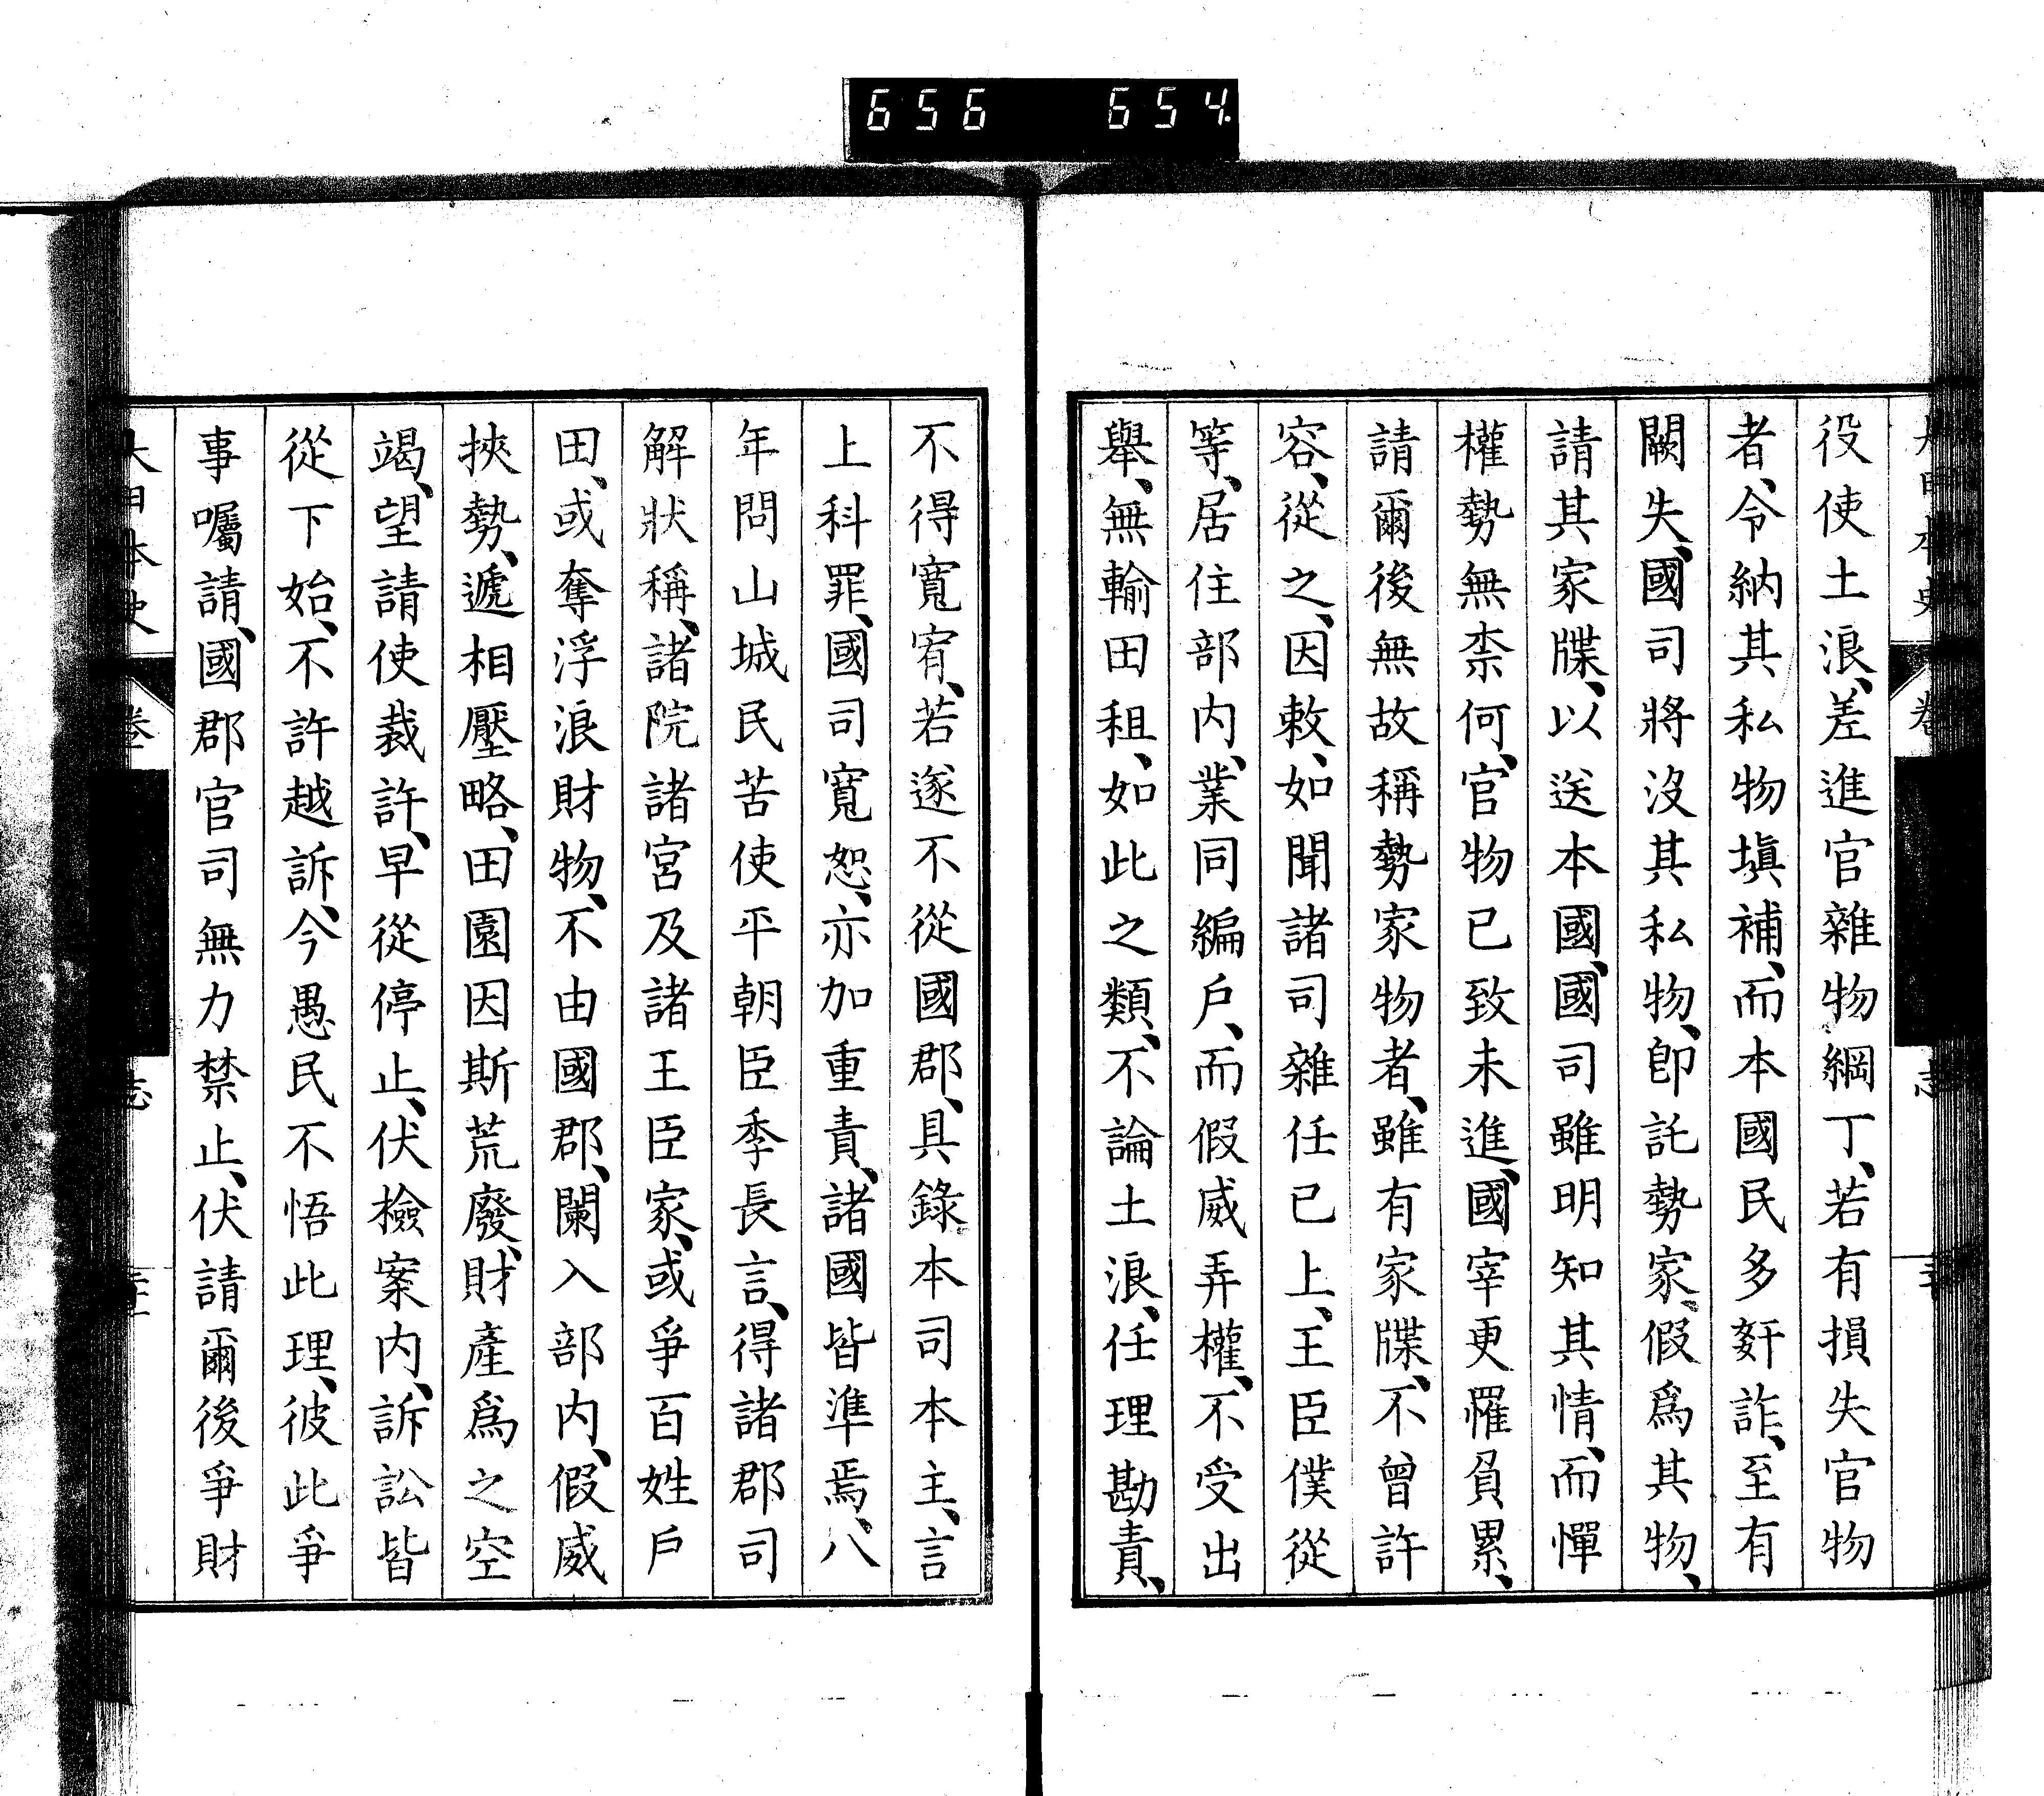 656 654
役使土浪、差進官雜物綱丁、若有損失官物
者、令納其私物塡補、而本國民多姧詐、至有
闕失、國司將沒其私物、卽託勢家、假爲其物、
請其家牒、以送本國、國司雖明知其情、而憚
權勢無柰何、官物已致未進、國宰更罹負累、
請爾後無故稱勢家物者、雖有家牒、不曾許
容、從之、因敕、如聞諸司雜任已上、王臣僕從
等、居住部内、業同編戶、而假威弄權、不受出
舉、無輸田租、如此之類、不論土浪、任理勘責、
不得寬宥、若遂不從國郡、具錄本司本主、言
上科罪、國司寬恕、亦加重責、諸國皆準焉、八
年問山城民苦使平朝臣季長言、得諸郡司
解狀稱、諸院諸宮及諸王臣家、或爭百姓戶
田、或奪浮浪財物、不由國郡、闌入部内、假威
挾勢、遞相壓略、田園因斯荒廢、財產爲之空
竭、望請使裁許、早從停止、伏檢案内、訴訟皆
從下始、不許越訴、今愚民不悟此理、彼此爭
事囑請、國郡官司無力禁止、伏請爾後爭財
大日本史 卷 志